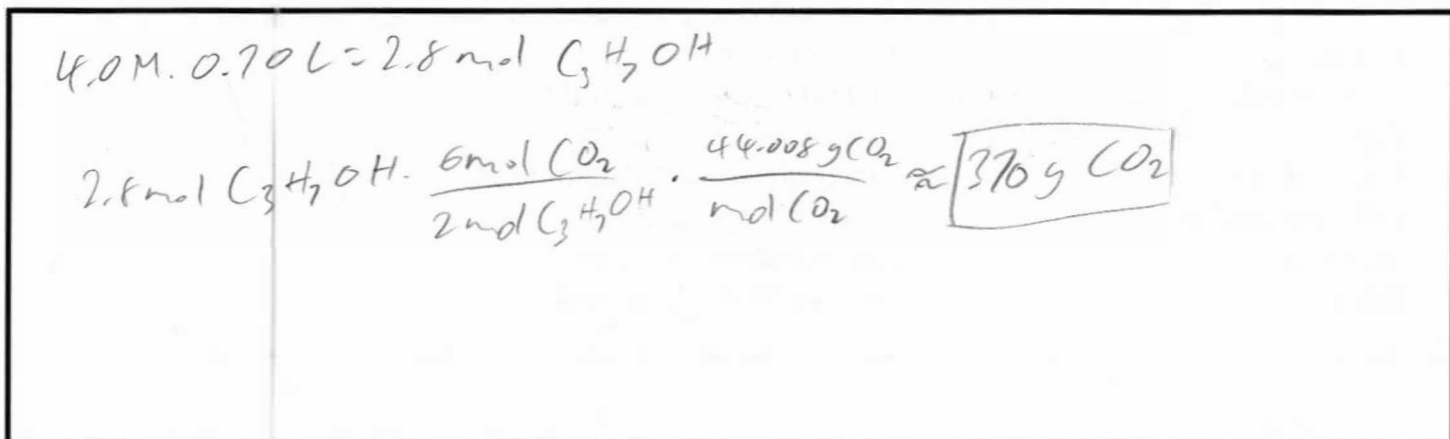 4.0M. 0.70 L = 2.8 mol C₃H₇OH
2.8 mol C₃H₇OH · 6 mol CO₂ / 2 mol C₃H₇OH · 44.008 g CO₂ / mol CO₂ ≈ 370 g CO₂